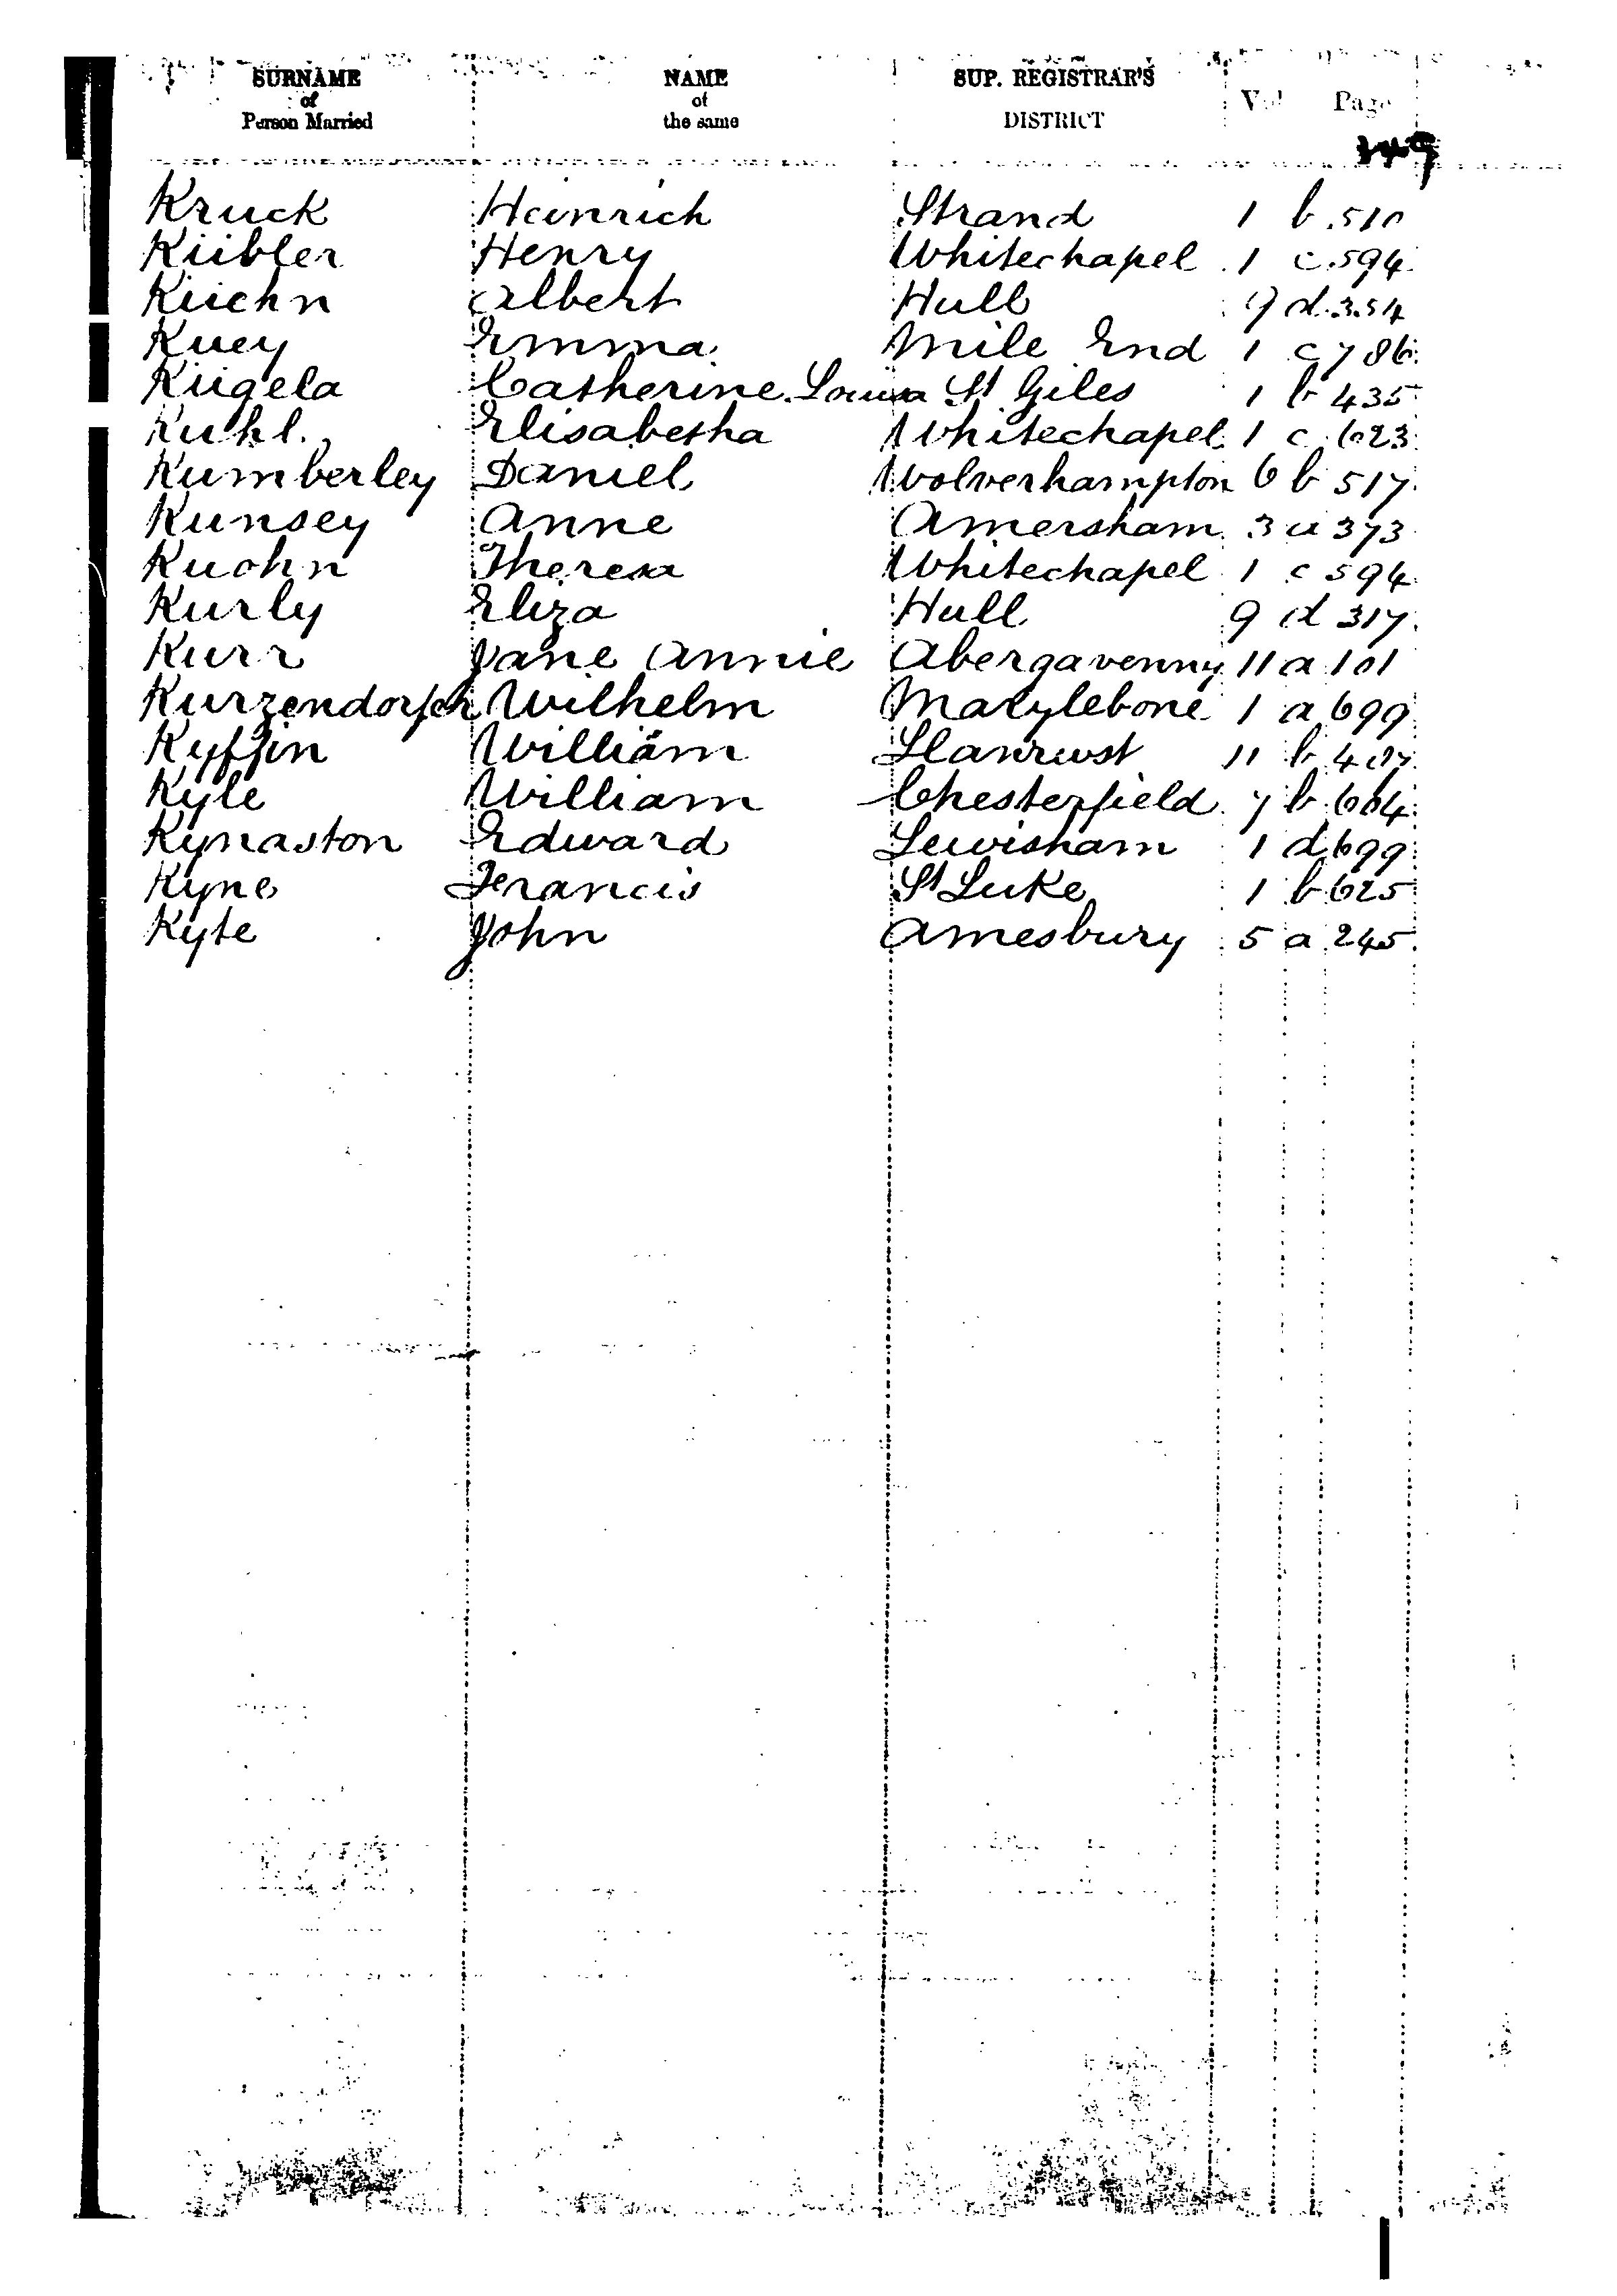 SURNAME NAME SUP. REGISTRAR'S
of of Vol Page
Person Married the same DISTRICT
Kruck Heinrich Strand 1 b 510
Kübler Henry Whitechapel 1 c 594
Küchn Albert Hull 9 d 354
Kuey Emma Mile End 1 c 786
Kügela Catherine Louisa St Giles 1 b 435
Kuhl Elisabetha Whitechapel 1 c 623
Kumberley Daniel Wolverhampton 6 b 517
Kunsey Anne Amersham 3 a 373
Kuohn Theresa Whitechapel 1 c 594
Kurly Eliza Hull 9 d 317
Kurr Jane Annie Abergavenny 11 a 101
Kurzendorfer Wilhelm Marylebone 1 a 699
Kyffin William Llanrwst 11 b 407
Kyle William Chesterfield 7 b 664
Kynaston Edward Lewisham 1 d 699
Kyne Francis St Luke 1 b 625
Kyte John Amesbury 5 a 245